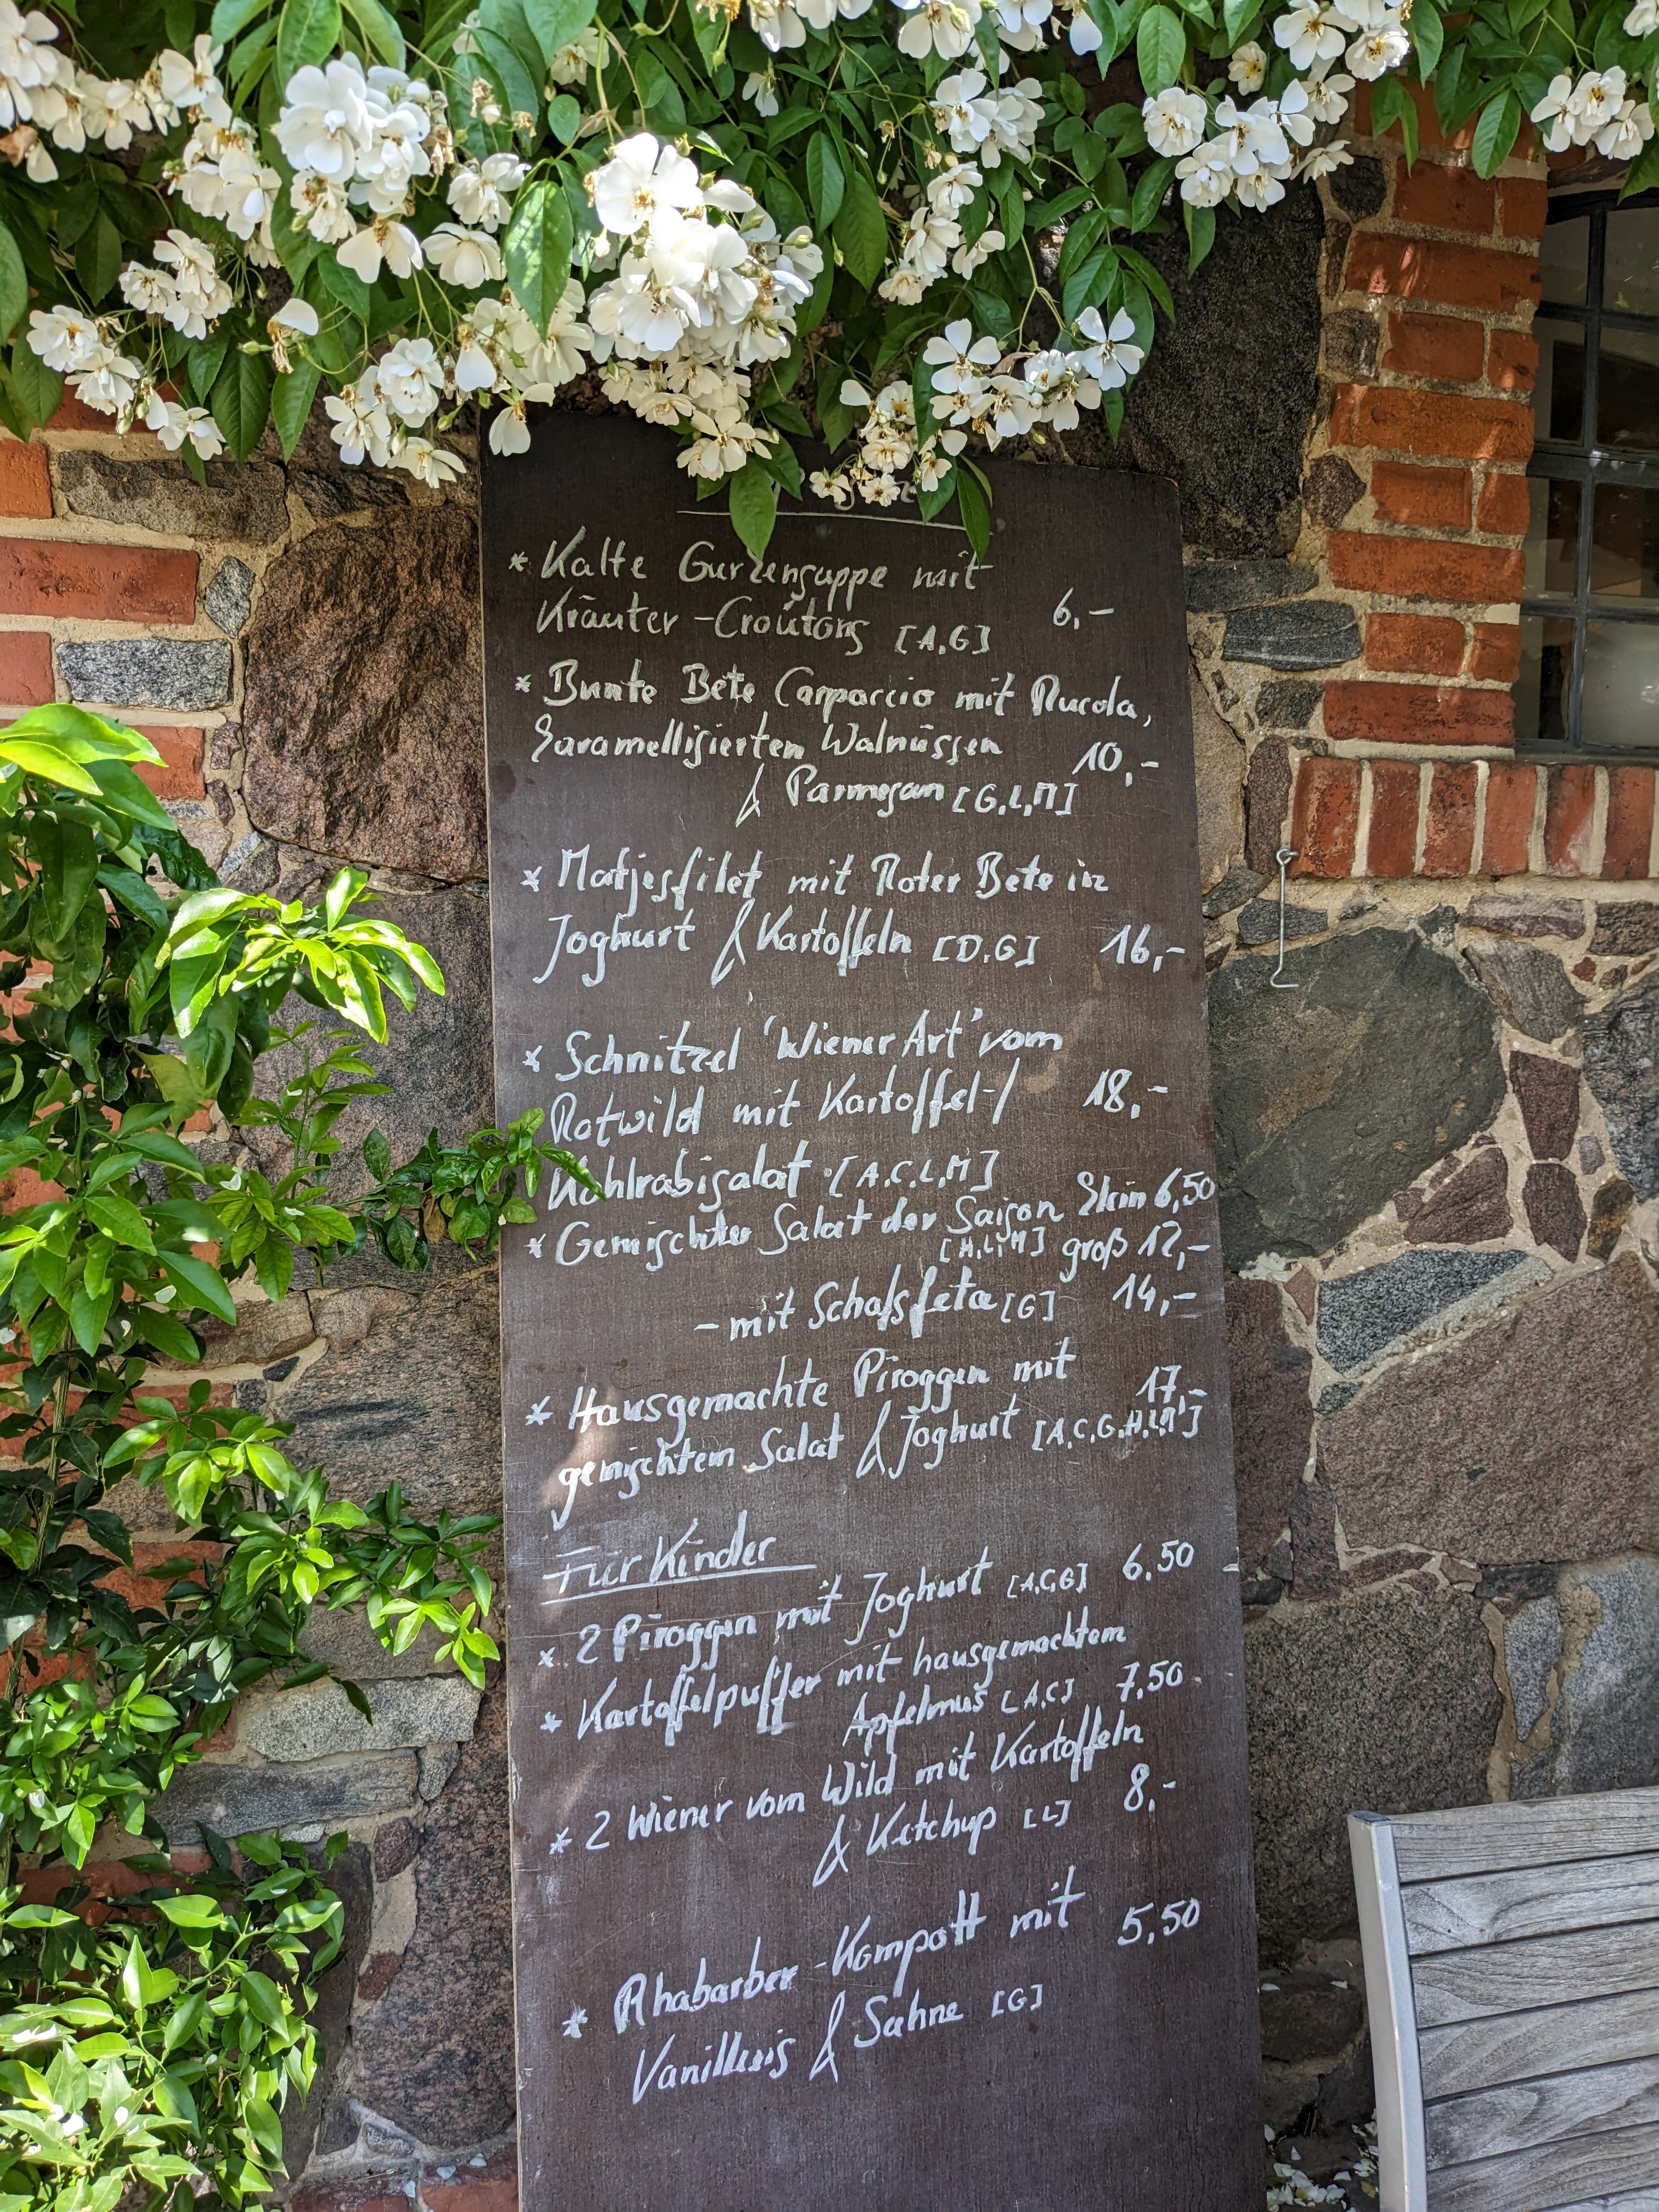 * Kalte Gurkensuppe mit
Kräuter-Croûtons [A,G] 6,-
* Bunte Bete Carpaccio mit Rucola,
karamellisierten Walnüssen 10,-
& Parmesan [G,L,M]
* Matjesfilet mit Roter Bete in
Joghurt & Kartoffeln [D,G] 16,-
* Schnitzel 'Wiener Art' vom
Rotwild mit Kartoffel-/ 18,-
Kohlrabisalat [A,C,L,M]
* Gemischter Salat der Saison klein 6,50
[H,L,M] groß 12,-
- mit Schafsfeta [G] 14,-
* Hausgemachte Piroggen mit 17,-
gemischtem Salat & Joghurt [A,C,G,H,L,M]
Für Kinder
* 2 Piroggen mit Joghurt [A,C,G] 6,50
* Kartoffelpuffer mit hausgemachtem
Apfelmus [A,C] 7,50
* 2 Wiener vom Wild mit Kartoffeln
& Ketchup [L] 8,-
* Rhabarber-Kompott mit 5,50
Vanilleeis & Sahne [G]